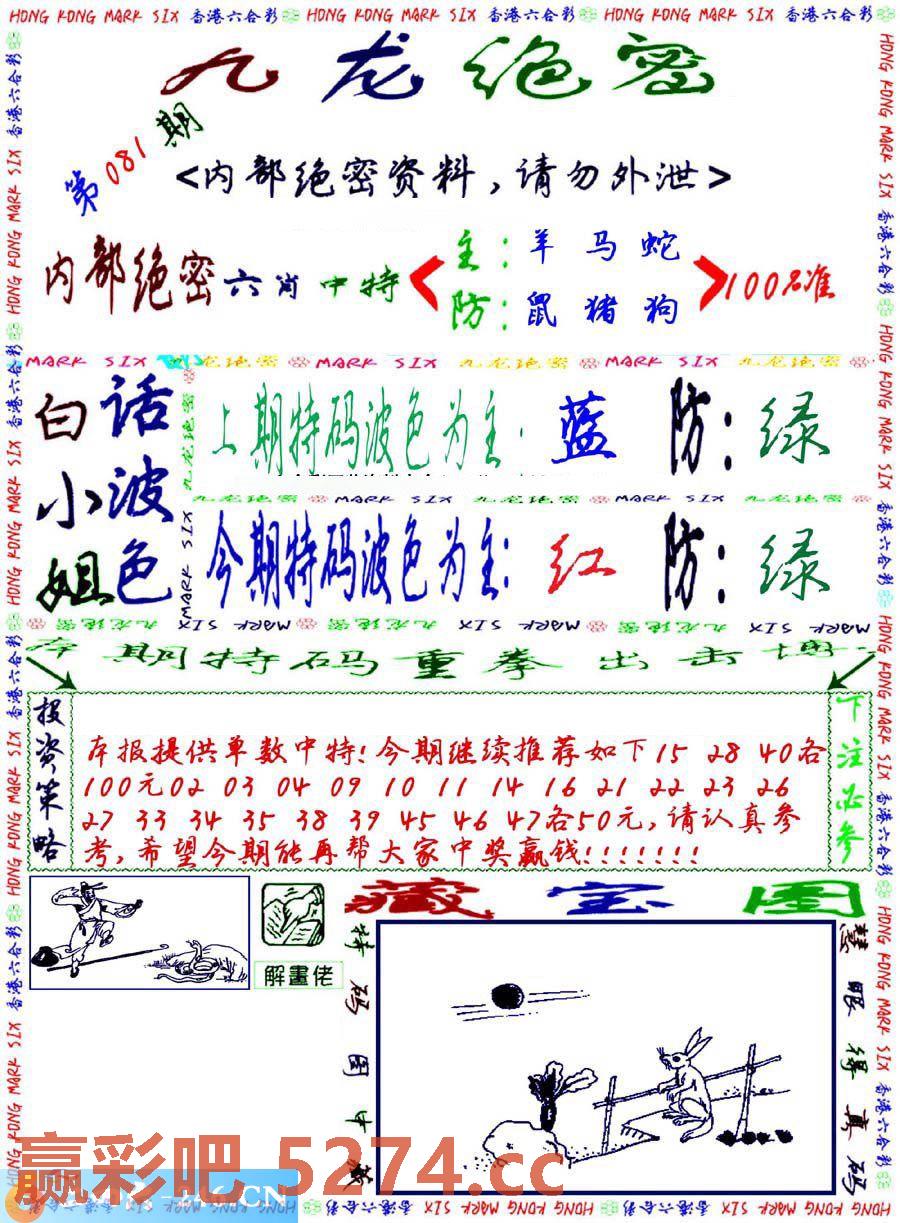 HONG KONG MARK SIX 香港六合彩 HONG KONG MARK SIX 香港六合彩 HONG KONG MARK SIX 香港六合彩
九龙绝密
第081期
<内部绝密资料，请勿外泄>
内部绝密六肖中特
主：羊 马 蛇
防：鼠 猪 狗
100%准
MARK SIX 九龙绝密 MARK SIX 九龙绝密 MARK SIX 九龙绝密
白话小波姐色
上期特码波色为主：蓝 防：绿
九龙绝密 MARK SIX 九龙绝密 MARK SIX 九龙绝密
今期特码波色为主：红 防：绿
九龙绝密 MARK SIX 九龙绝密 MARK SIX 九龙绝密 MARK SIX
期特码重拳出击
投资策略
本报提供单数中特！今期继续推荐如下15 28 40各
100元02 03 04 09 10 11 14 16 21 22 23 26
27 33 34 35 38 39 45 46 47各50元，请认真参
考，希望今期能再帮大家中奖赢钱！！！！！！！
下注必参
解畫佬
藏宝图
特码图中
慧眼得真码
赢彩吧 5274.cc